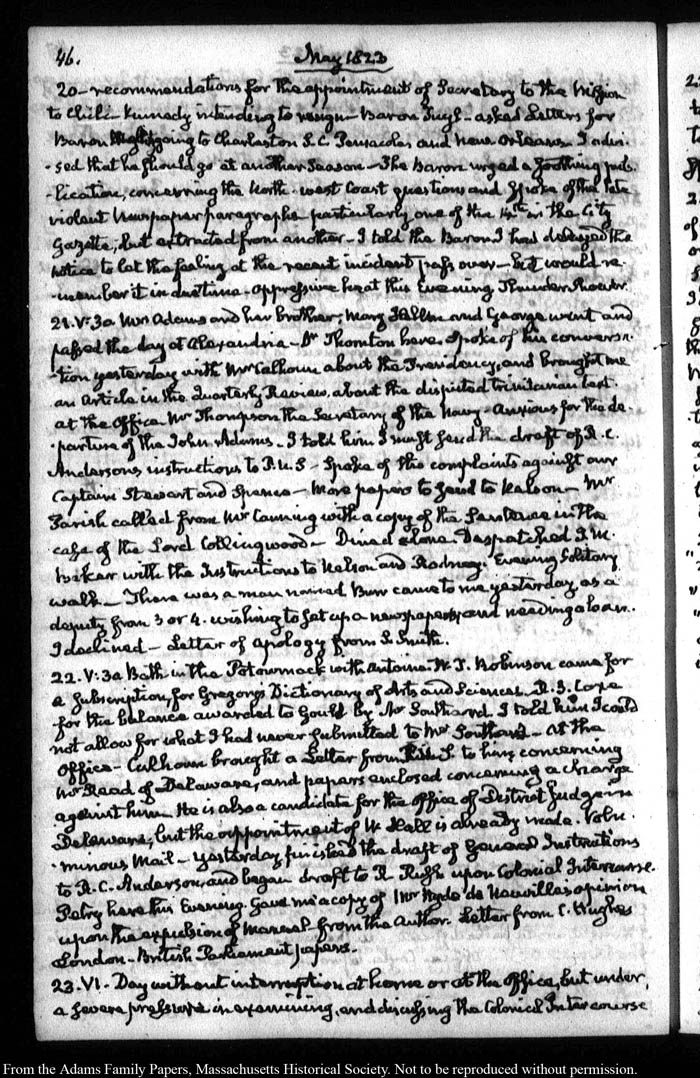 46.
May 1823
20 - recommendations for the appointment of Secretary to the Mission
to Chili - Kennedy intending to resign - Baron Tuyl - asked Letters for
Baron going to Charleston S. C. Pensacola and New Orleans. I advi-
-sed that he should go at another Season - The Baron urged a soothing pub-
-lication, concerning the North-west Coast questions and spoke of the late
violent Newspaper paragraphs particularly one of the 14th in the City
Gazette; but extracted from another - I told the Baron I had delayed the
notice to let the feeling at the recent incident pass over - but would re-
-member it in due time - oppressive heat this Evening Thunder Shower.
21. V: 3a Mrs Adams and her brother; Mary Hellen and George went and
passed the day at Alexandria - Dr Thornton here. Spoke of his conversa-
-tion yesterday with Mr Calhoun about the Presidency, and brought me
an Article in the Quarterly Review, about the disputed trinitarian text.
at the Office Mr Thompson the Secretary of the Navy - Anxious for the de-
-parture of the John Adams - I told him I must send the draft of R. C.
Andersons instructions to P. U. S - Spoke of the complaints against our
Captains Stewart and Spence - More papers to send to Nelson - Mr
Parish called from Mr Canning with a copy of the Sentence in the
case of the Lord Collingwood - Dined alone. Despatched J. M.
Baker with the Instructions to Nelson and Rodney. Evening Solitary
walk - There was a man named Burr came to me yesterday as a
deputy from 3 or 4. wishing to set up a newspaper, and needing a loan.
I declined - Letter of apology from S. Smith.
22. V: 3a Bath in the Potowmack with Antoine. W. J. Robinson came for
a Subscription, for Gregory's Dictionary of Arts and Sciences. R. S. Coxe
for the balance awarded to Gould by Mr Southard. I told him I could
not allow for what I had never submitted to Mr Southard - At the
Office - Calhoun brought a Letter from to him; concerning
Mr Read of Delaware, and papers enclosed concerning a charge
against him. He is also a candidate for the office of District Judge in
Delaware, but the appointment of W. Hall is already made. Volu-
-minous Mail - yesterday finished the draft of General Instructions
to R. C. Anderson, and began draft to R. Rush upon Colonial Intercourse.
Petry here this Evening. Gave me a copy of Mr Hyde de Neuville's opinion
upon the expulsion of Manuel from the Author. Letter from C. Hughes
London - British Parliament papers.
23. VI. Day without interruption at home or at the Office, but under,
a severe pressure in examining, and discussing the Colonial Intercourse
From the Adams Family Papers, Massachusetts Historical Society. Not to be reproduced without permission.